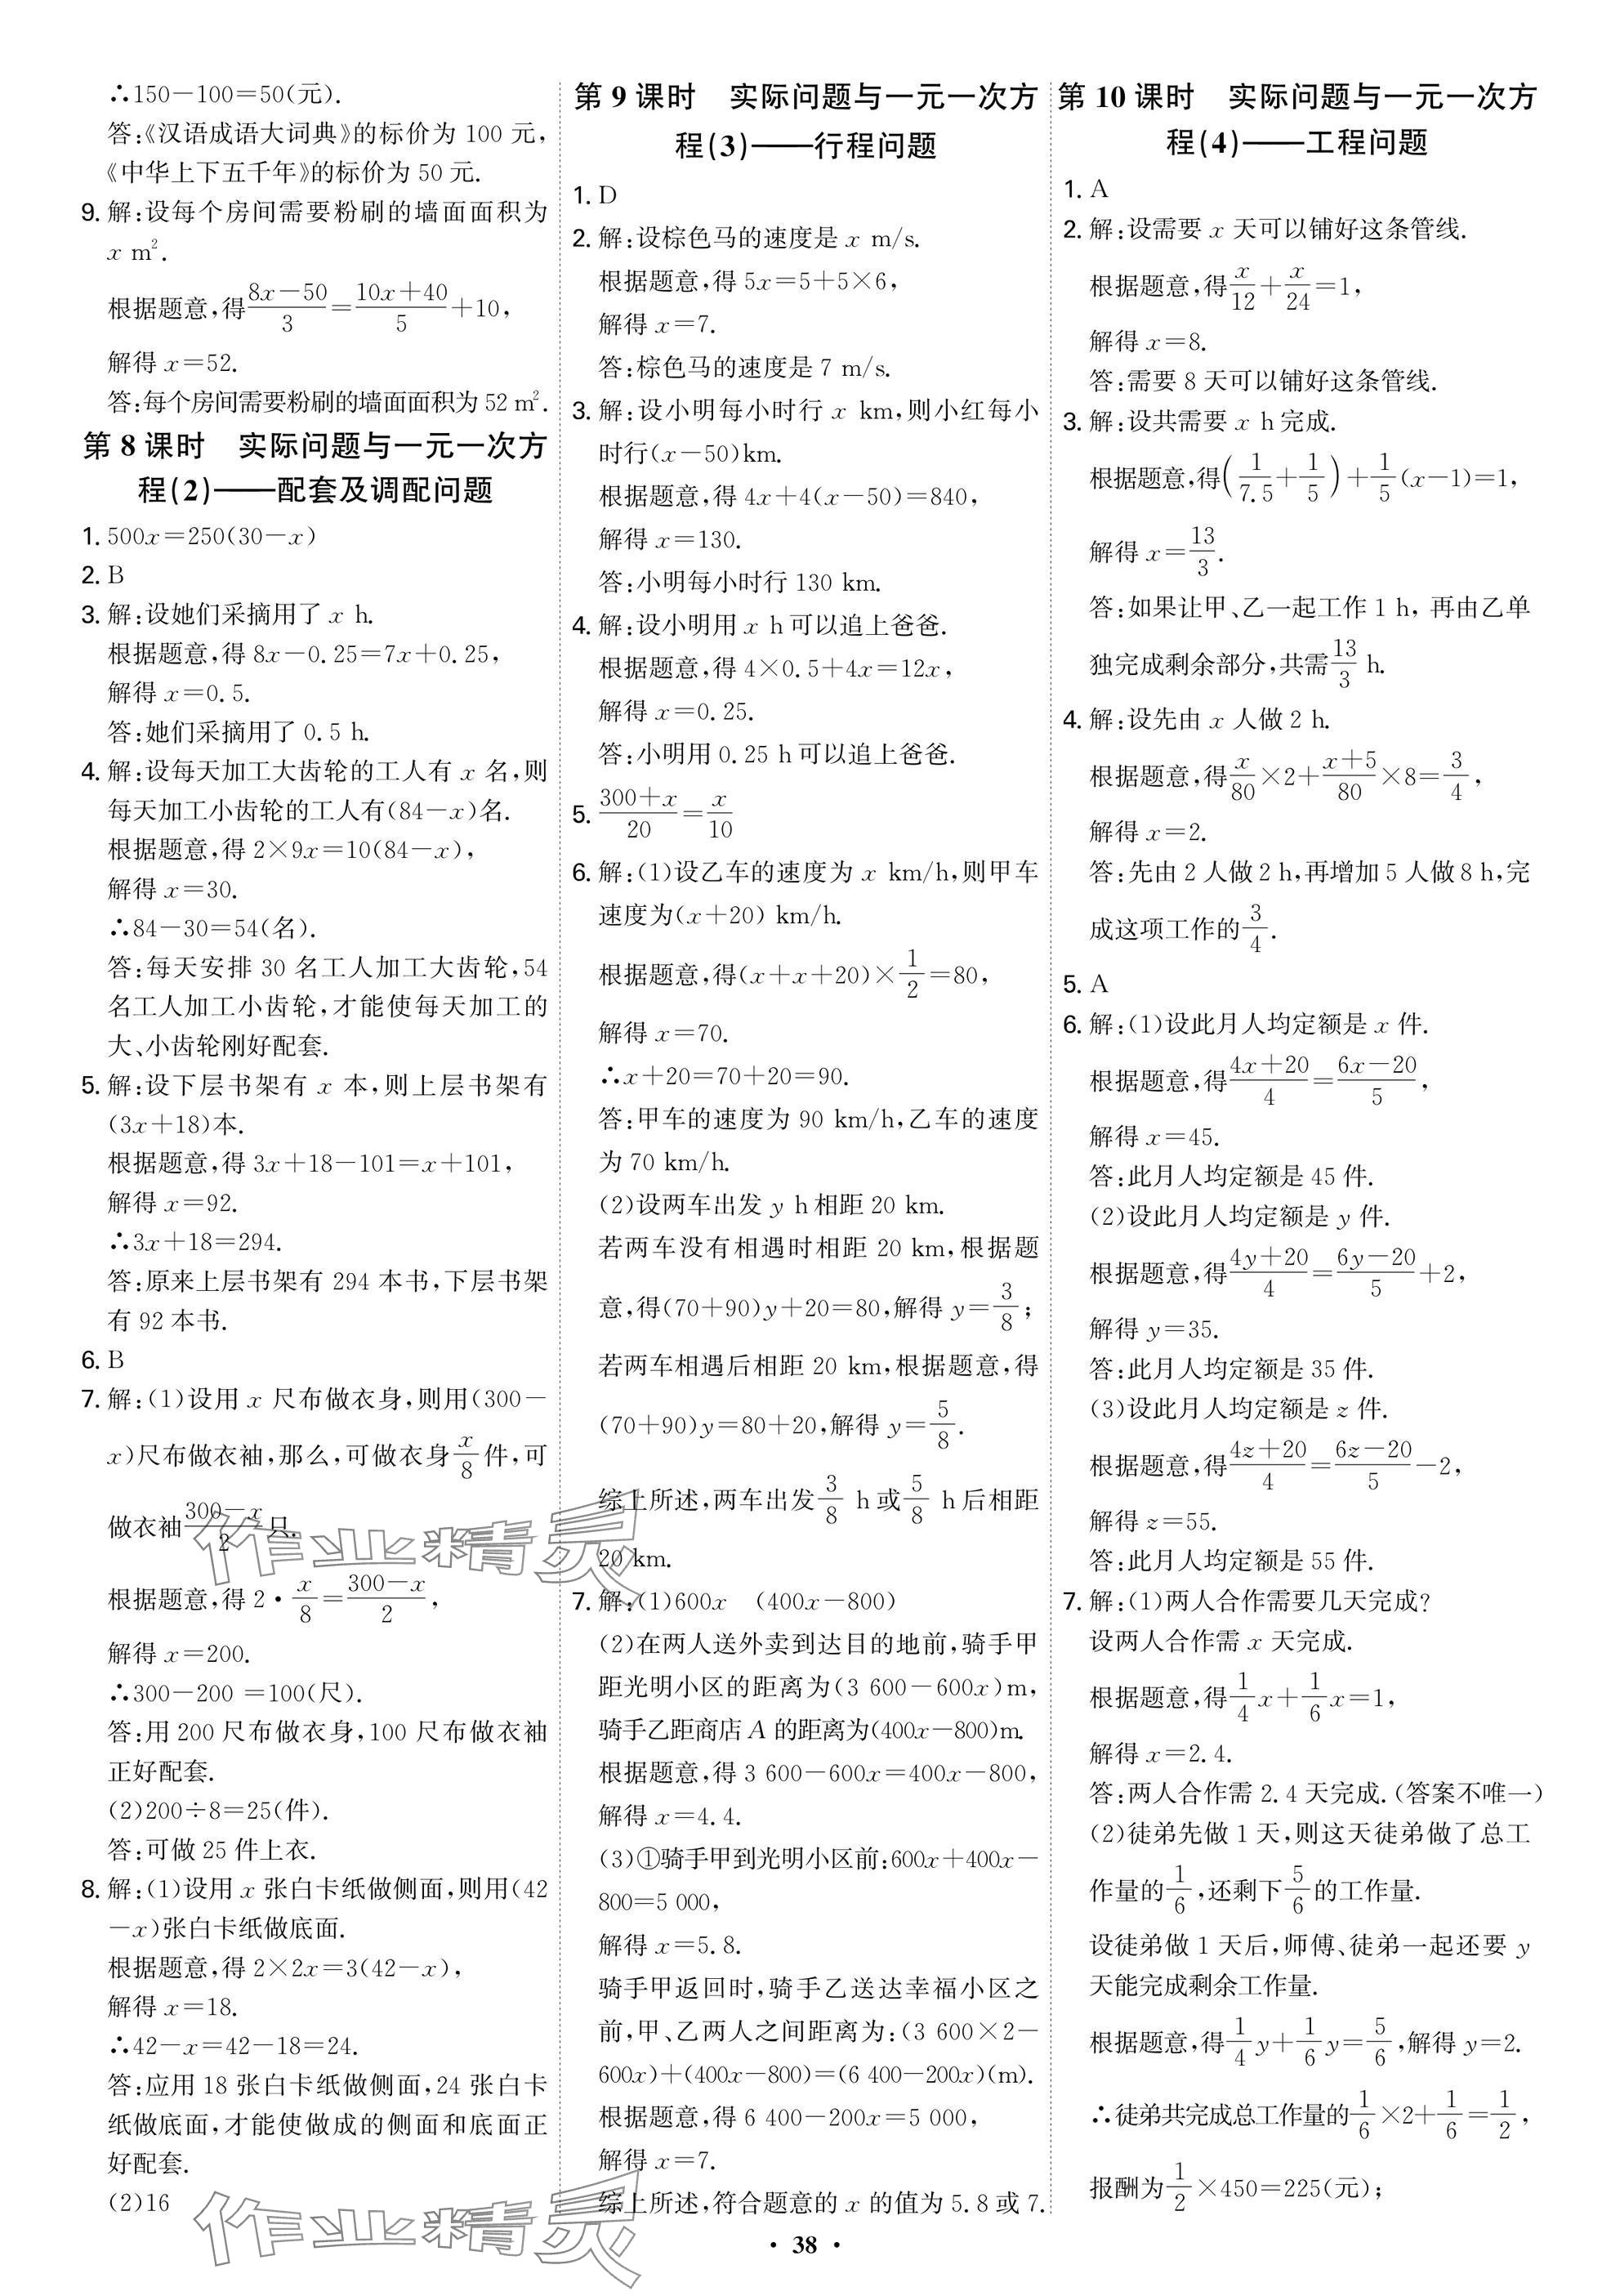 ∴150－100＝50(元).
答:《汉语成语大词典》的标价为 100 元,
《中华上下五千年》的标价为 50 元.
9. 解:设每个房间需要粉刷的墙面面积为
x m².
根据题意,得(8x－50)/3＝(10x＋40)/5＋10,
解得 x＝52.
答:每个房间需要粉刷的墙面面积为 52 m².
第 8 课时　实际问题与一元一次方
程(2)——配套及调配问题
1. 500x＝250(30－x)
2. B
3. 解:设她们采摘用了 x h.
根据题意,得 8x－0.25＝7x＋0.25,
解得 x＝0.5.
答:她们采摘用了 0.5 h.
4. 解:设每天加工大齿轮的工人有 x 名,则
每天加工小齿轮的工人有(84－x)名.
根据题意,得 2×9x＝10(84－x),
解得 x＝30.
∴84－30＝54(名).
答:每天安排 30 名工人加工大齿轮,54
名工人加工小齿轮,才能使每天加工的
大、小齿轮刚好配套.
5. 解:设下层书架有 x 本,则上层书架有
(3x＋18)本.
根据题意,得 3x＋18－101＝x＋101,
解得 x＝92.
∴3x＋18＝294.
答:原来上层书架有 294 本书,下层书架
有 92 本书.
6. B
7. 解:(1)设用 x 尺布做衣身,则用(300－
x)尺布做衣袖,那么,可做衣身x/8件,可
做衣袖(300－x)/2只.
根据题意,得 2·x/8＝(300－x)/2,
解得 x＝200.
∴300－200＝100(尺).
答:用 200 尺布做衣身,100 尺布做衣袖
正好配套.
(2)200÷8＝25(件).
答:可做 25 件上衣.
8. 解:(1)设用 x 张白卡纸做侧面,则用(42
－x)张白卡纸做底面.
根据题意,得 2×2x＝3(42－x),
解得 x＝18.
∴42－x＝42－18＝24.
答:应用 18 张白卡纸做侧面,24 张白卡
纸做底面,才能使做成的侧面和底面正
好配套.
(2)16
第 9 课时　实际问题与一元一次方
程(3)——行程问题
1. D
2. 解:设棕色马的速度是 x m/s.
根据题意,得 5x＝5＋5×6,
解得 x＝7.
答:棕色马的速度是 7 m/s.
3. 解:设小明每小时行 x km,则小红每小
时行(x－50)km.
根据题意,得 4x＋4(x－50)＝840,
解得 x＝130.
答:小明每小时行 130 km.
4. 解:设小明用 x h 可以追上爸爸.
根据题意,得 4×0.5＋4x＝12x,
解得 x＝0.25.
答:小明用 0.25 h 可以追上爸爸.
5. (300＋x)/20＝x/10
6. 解:(1)设乙车的速度为 x km/h,则甲车
速度为(x＋20) km/h.
根据题意,得(x＋x＋20)×1/2＝80,
解得 x＝70.
∴x＋20＝70＋20＝90.
答:甲车的速度为 90 km/h,乙车的速度
为 70 km/h.
(2)设两车出发 y h 相距 20 km.
若两车没有相遇时相距 20 km,根据题
意,得(70＋90)y＋20＝80,解得 y＝3/8;
若两车相遇后相距 20 km,根据题意,得
(70＋90)y＝80＋20,解得 y＝5/8.
综上所述,两车出发3/8 h 或5/8 h 后相距
20 km.
7. 解:(1)600x　(400x－800)
(2)在两人送外卖到达目的地前,骑手甲
距光明小区的距离为(3 600－600x)m,
骑手乙距商店 A 的距离为(400x－800)m.
根据题意,得 3 600－600x＝400x－800,
解得 x＝4.4.
(3)①骑手甲到光明小区前:600x＋400x－
800＝5 000,
解得 x＝5.8.
骑手甲返回时,骑手乙送达幸福小区之
前,甲、乙两人之间距离为:(3 600×2－
600x)＋(400x－800)＝(6 400－200x)(m).
根据题意,得 6 400－200x＝5 000,
解得 x＝7.
综上所述,符合题意的 x 的值为 5.8 或 7.
第 10 课时　实际问题与一元一次方
程(4)——工程问题
1. A
2. 解:设需要 x 天可以铺好这条管线.
根据题意,得x/12＋x/24＝1,
解得 x＝8.
答:需要 8 天可以铺好这条管线.
3. 解:设共需要 x h 完成.
根据题意,得(1/7.5＋1/5)＋1/5(x－1)＝1,
解得 x＝13/3.
答:如果让甲、乙一起工作 1 h, 再由乙单
独完成剩余部分,共需13/3 h.
4. 解:设先由 x 人做 2 h.
根据题意,得x/80×2＋(x＋5)/80×8＝3/4,
解得 x＝2.
答:先由 2 人做 2 h,再增加 5 人做 8 h,完
成这项工作的3/4.
5. A
6. 解:(1)设此月人均定额是 x 件.
根据题意,得(4x＋20)/4＝(6x－20)/5,
解得 x＝45.
答:此月人均定额是 45 件.
(2)设此月人均定额是 y 件.
根据题意,得(4y＋20)/4＝(6y－20)/5＋2,
解得 y＝35.
答:此月人均定额是 35 件.
(3)设此月人均定额是 z 件.
根据题意,得(4z＋20)/4＝(6z－20)/5－2,
解得 z＝55.
答:此月人均定额是 55 件.
7. 解:(1)两人合作需要几天完成?
设两人合作需 x 天完成.
根据题意,得1/4x＋1/6x＝1,
解得 x＝2.4.
答:两人合作需 2.4 天完成.(答案不唯一)
(2)徒弟先做 1 天,则这天徒弟做了总工
作量的1/6,还剩下5/6的工作量.
设徒弟做 1 天后,师傅、徒弟一起还要 y
天能完成剩余工作量.
根据题意,得1/4y＋1/6y＝5/6,解得 y＝2.
∴徒弟共完成总工作量的1/6×2＋1/6＝1/2,
报酬为1/2×450＝225(元);
作业精灵
作业精灵
· 38 ·